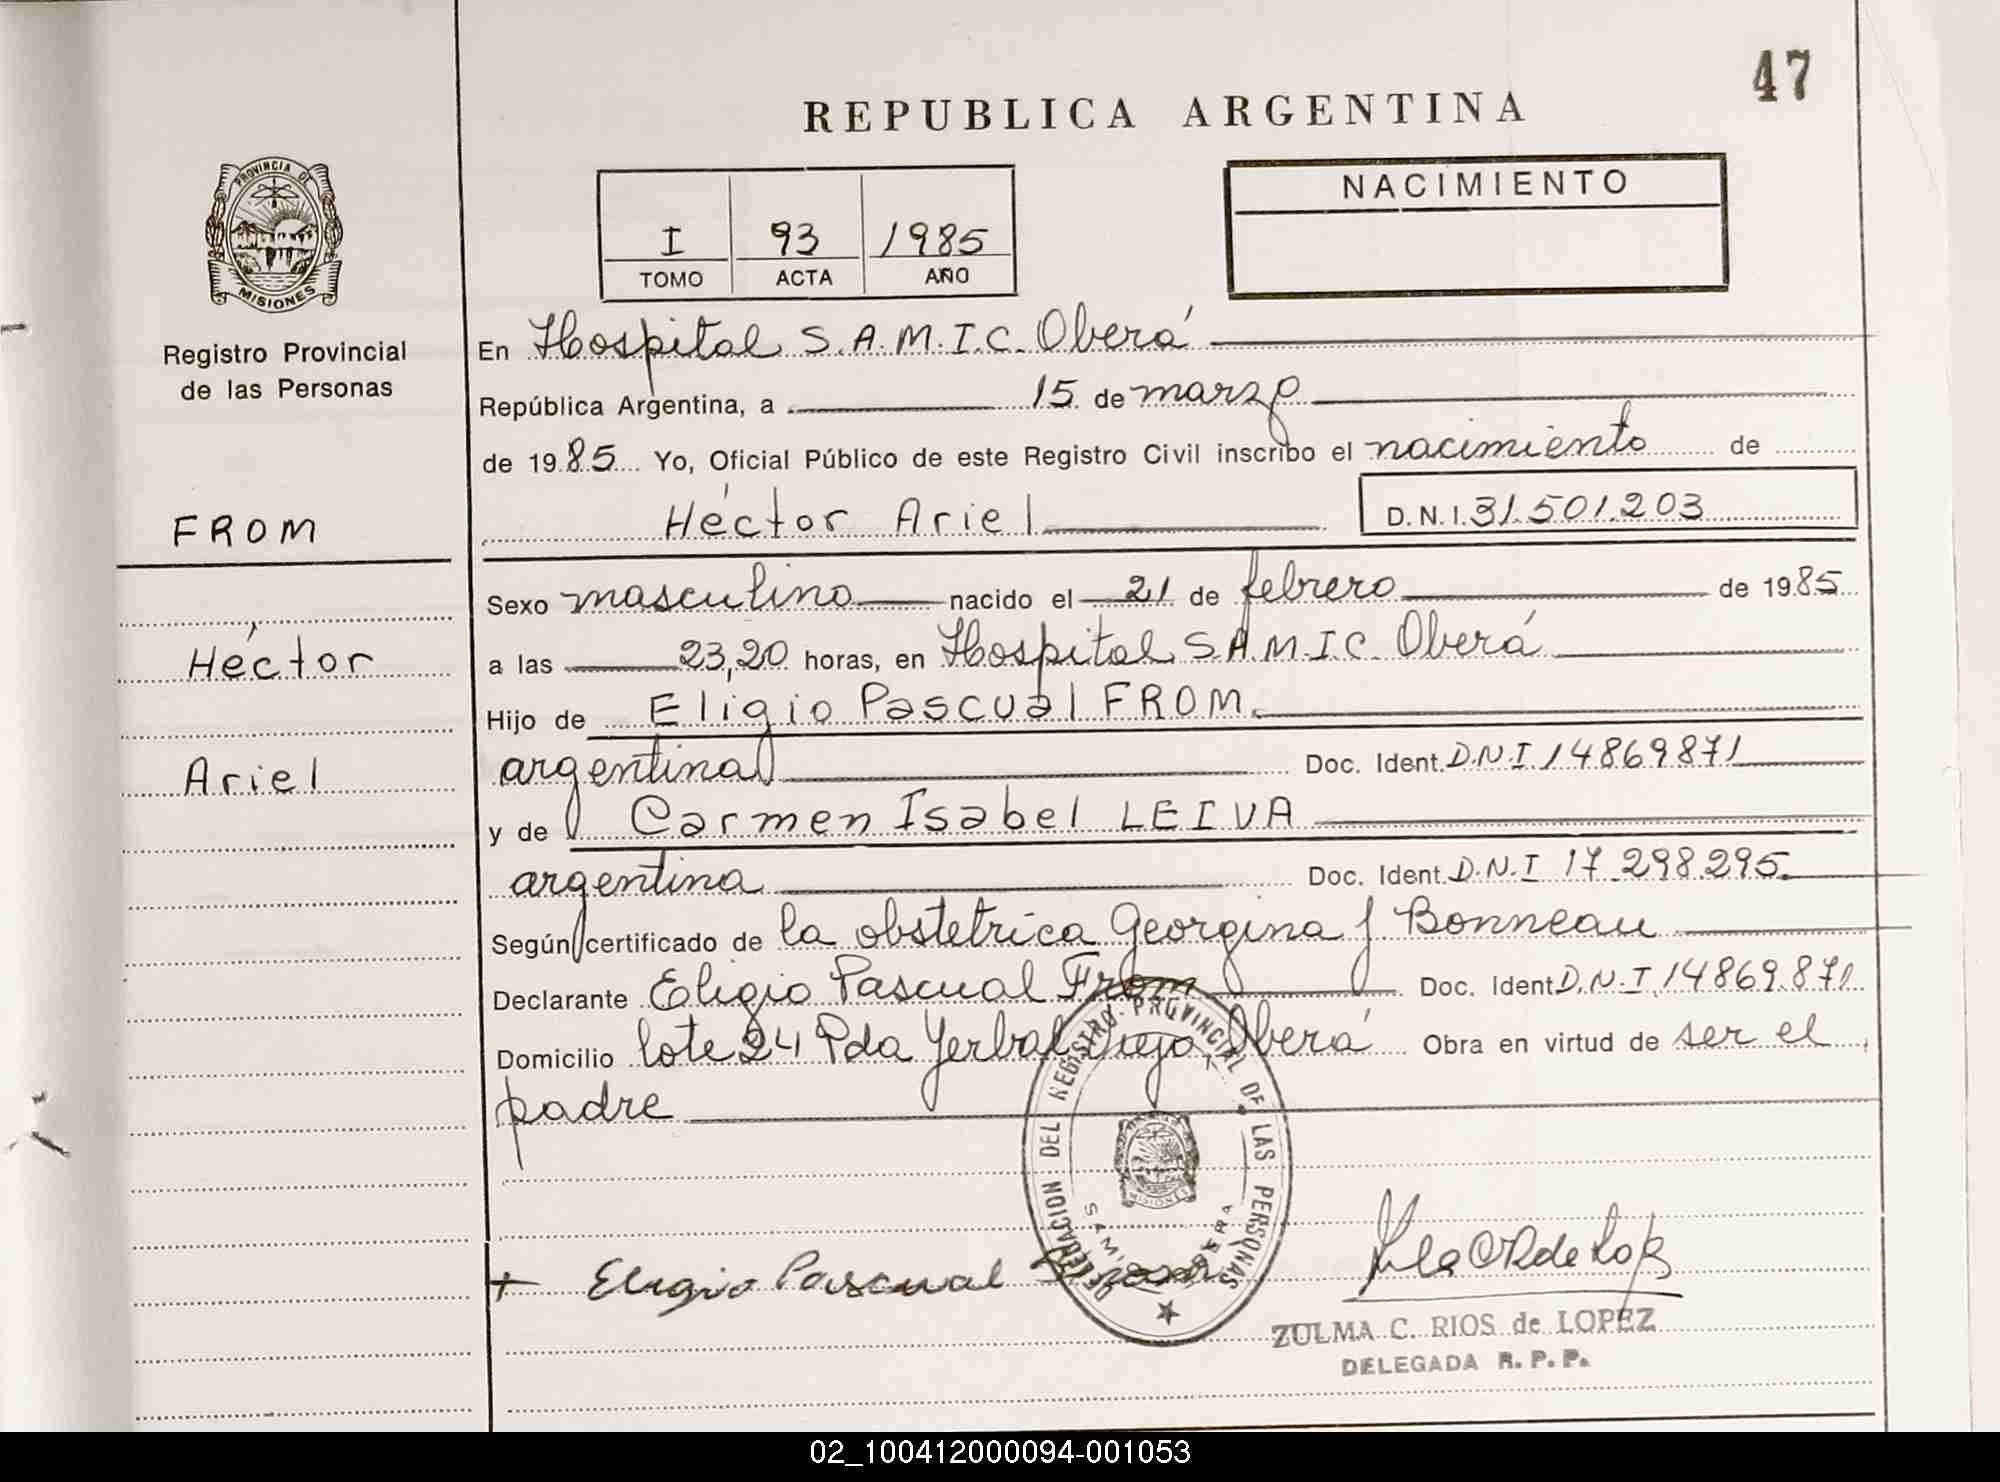 47
REPUBLICA ARGENTINA
PROVINCIA DE
MISIONES
Registro Provincial
de las Personas
FROM
Héctor
Ariel
I 93 1985
TOMO ACTA AÑO
NACIMIENTO
En Hospital S.A.M.I.C. Oberá
República Argentina, a 15 de marzo
de 1985 Yo, Oficial Público de este Registro Civil inscribo el nacimiento de
Héctor Ariel D.N.I. 31.501.203
Sexo masculino nacido el 21 de febrero de 1985
a las 23,20 horas, en Hospital S.A.M.I.C. Oberá
Hijo de Eligio Pascual FROM
argentina Doc. Ident. D.N.I. 14869871
y de Carmen Isabel LEIVA
argentina Doc. Ident. D.N.I 17.298.295
Según certificado de la obstetrica Georgina J Bonneau
Declarante Eligio Pascual From Doc. Ident D.N.I. 14869.871
Domicilio lote 24 Pda Yerbal Viejo Oberá Obra en virtud de ser el
padre
DELEGACION DEL REGISTRO PROVINCIAL DE LAS PERSONAS
MISIONES
+ Eligio Pascual From
ZULMA C. RIOS de LOPEZ
DELEGADA R.P.P.
02_100412000094-001053